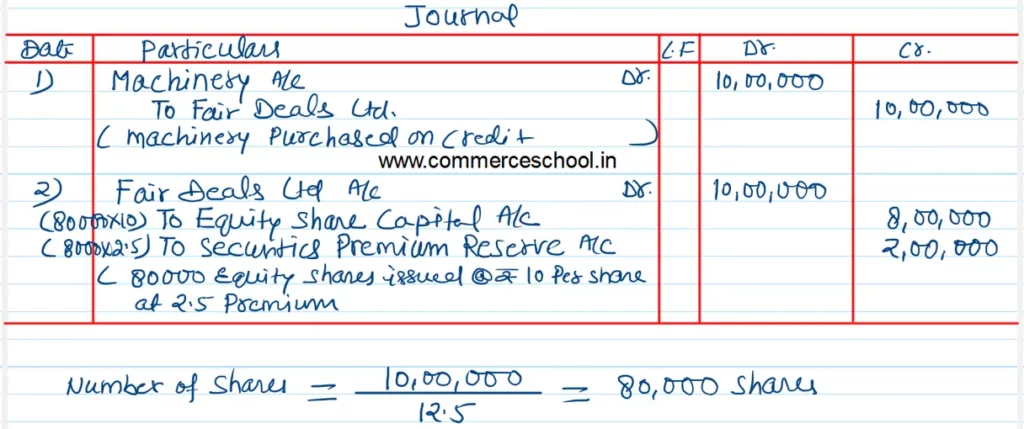 Journal
Date Particulars L.F Dr. Cr.
1) Machinery A/c Dr. 10,00,000
To Fair Deals Ltd. 10,00,000
( machinery Purchased on Credit )
www.commerceschool.in
2) Fair Deals Ltd A/c Dr. 10,00,000
(80000x10) To Equity Share Capital A/c 8,00,000
(8000x2.5) To Securities Premium Reserve A/c 2,00,000
( 80000 Equity shares issued @ ₹ 10 Per share
at 2.5 Premium
Number of Shares = 10,00,000 / 12.5 = 80,000 Shares